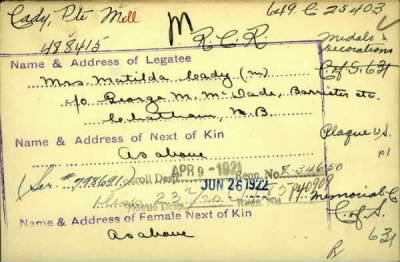 Cady, Pte Mell
649. C 25403
488415
M
R.C.R
Medals &
Decorations
C of S. 631
Name & Address of Legatee
Mrs. Matilda Cady (M)
c/o George M. McDade, Barrister etc.
Chatham, N.B
Name & Address of Next of Kin
As above
Plaque
APR 9 - 1921
Scroll Desp. Reqn. No.
JUN 26 1922
Plaque Desp. Reqn. No.
P40909
Memorial C
C of S.
631
Name & Address of Female Next of Kin
As above
R